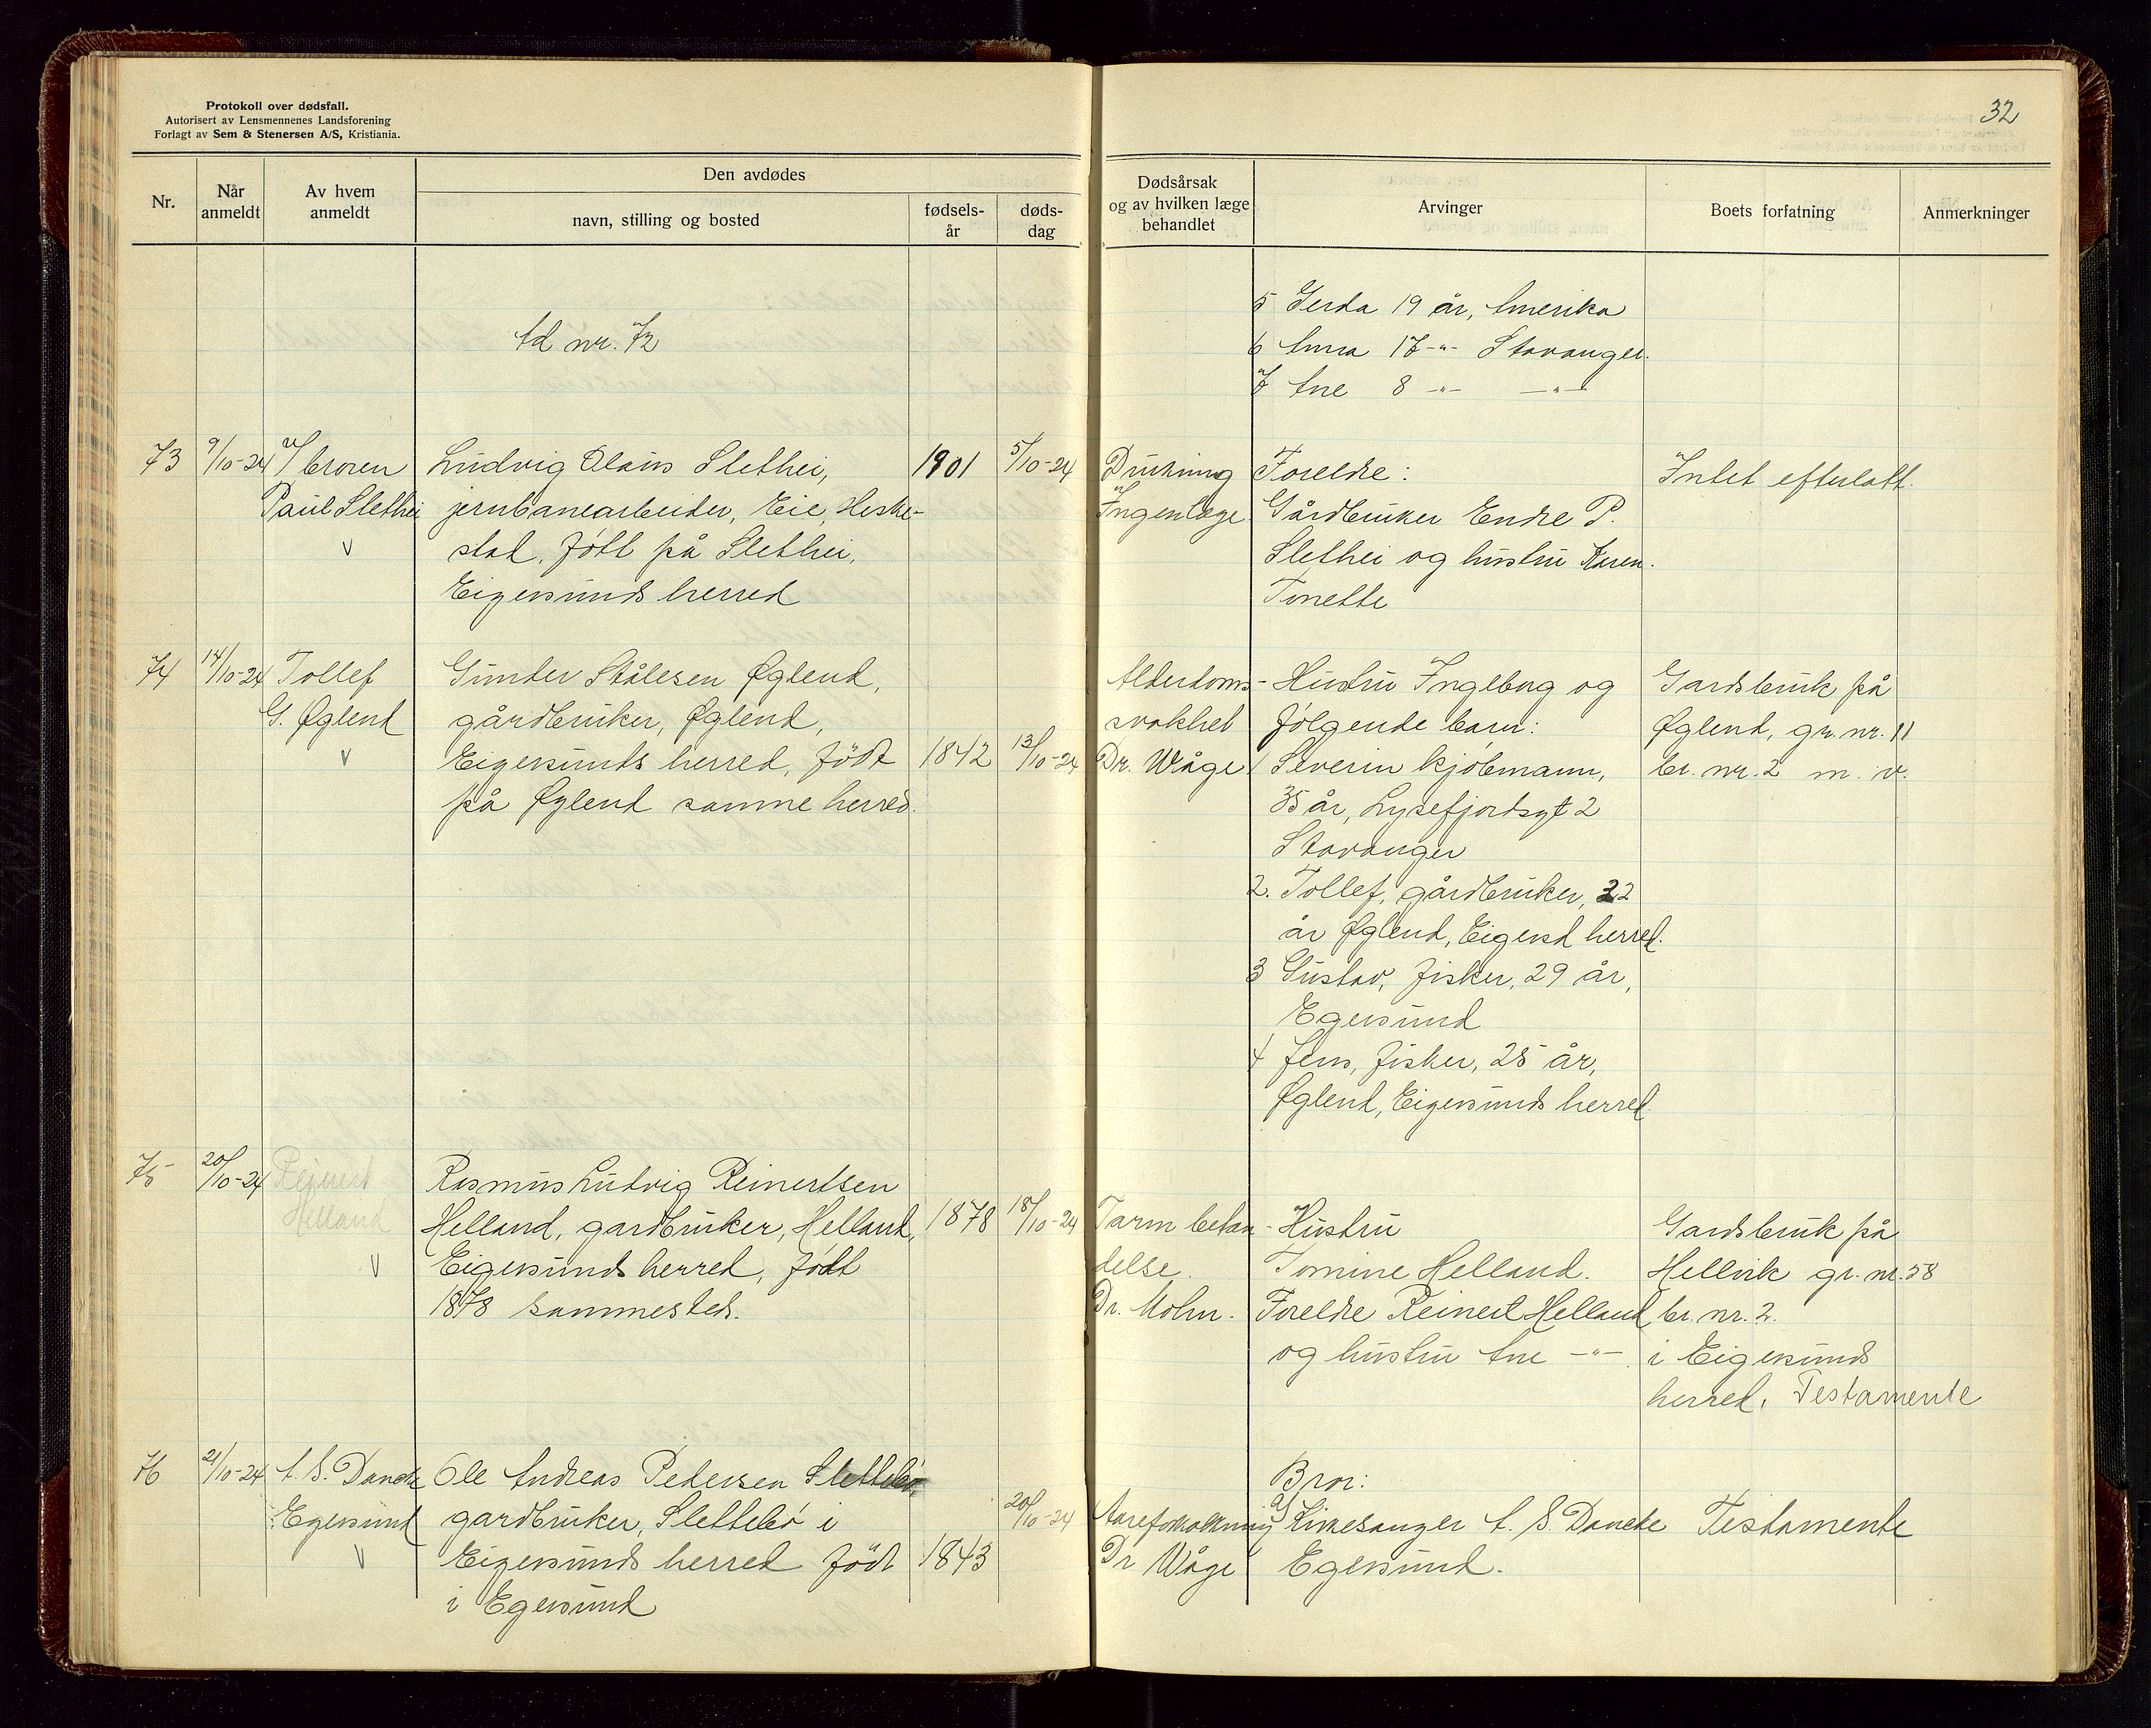 Protokoll over dødsfall.
Autorisert av Lensmennenes Landsforening
Forlagt av Sem & Stenersen A/S, Kristiania.
32
Nr.
Når anmeldt
Av hvem anmeldt
Den avdødes
navn, stilling og bosted
fødsels-år
døds-dag
Dødsårsak og av hvilken læge behandlet
Arvinger
Boets forfatning
Anmerkninger
Ad nr. 72
5 Gerda 19 år, Amerika
6 Anna 17 -"- Stavanger.
7 Ane 8 -"- -"-
73
9/10-24
v/ broren
Paul Slethei
v
Ludvig Olaus Slethei,
jernbanearbeider, Eie, Heske-
stad, født på Slethei,
Eigersunds herred
1901
5/10-24
Drukning
Ingen læge
Foreldre:
Gårdbruker Endre P.
Slethei og hustru Karen
Tonette
Intet efterlatt.
74
14/10-24
Tollef
G. Øglend
v
Gunder Stålesen Øglend,
gårdbruker, Øglend,
Eigersunds herred, født
på Øglend samme herred.
1842
13/10-24
Alderdoms-
svakhet
Dr. Wåge
Hustru Ingeborg og
følgende barn:
1 Severin kjøbmann,
35 år, Lysefjordsgt 2
Stavanger
2. Tollef, gårdbruker, 32
år Øglend, Eigersd herred.
3 Gustav, fisker, 29 år,
Egersund
4 Jens, fisker, 25 år,
Øglend, Eigersunds herred.
Gardsbruk på
Øglend, gr. nr. 11
br. nr. 2 m. v.
75
20/10-24
Reinert
Helland
v
Rasmus Ludvig Reinertsen
Helland, gardbruker, Helland,
Eigersunds herred, født
1878 sammesteds.
1878
18/10-24
Tarm betæn-
delse.
Dr. Mohn.
Hustru
Tomine Helland.
Foreldre Reinert Helland
og hustru Ane -"-
Gardsbruk på
Hellvik gr. nr. 58
br. nr. 2.
i Eigersunds
herred. Testamente
76
21/10-24
A. S. Dancke
Egersund
v
Ole Andreas Pedersen Slettebø,
gardbruker, Slettebø i
Eigersunds herred født
i Egersund
1843
20/10-24
Aareforkalkning
Dr Wåge
Bror:
Kirkesanger A. S. Dancke
Egersund.
Testamente